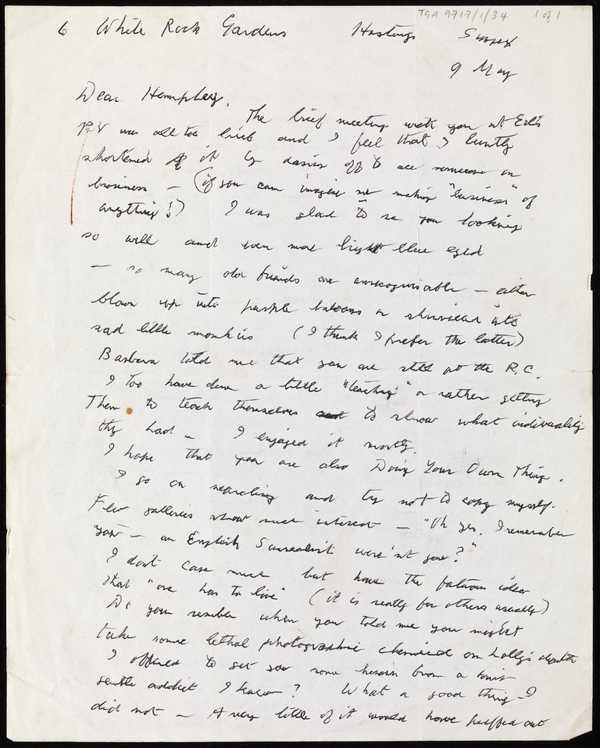 TGA 9717/1/34 1 of 1
6 White Rock Gardens Hastings Sussex
9 May
Dear Humphrey,
The brief meeting with you at
was all too brief and I feel that I
shortened it by dashing off to see someone on
business – (if you can imagine me making "business" of
anything!) I was glad to see you looking
so well and even more bright blue eyed
– so many old friends are unrecognisable – either
blown up into purple baloons or shriveled into
sad little monkeys (I think I prefer the latter)
Barbara told me that you are still at the R.C.
I too have done a little "teaching" or rather getting
them to teach themselves to show what individuality
they had – I enjoyed it mostly.
I hope that you are also Doing Your Own Thing.
I go on and try not to copy myself.
Few galleries show much interest – "Oh yes, I remember
you – an English Surrealist were'nt you?"
I dont care much but have the fatuous idea
that "one has to live" (it is really for others usually)
Do you remember when you told me you might
take some lethal photographic chemical on Lolly's death
I offered to get you some heroin from a
gentle addict I knew? What a good thing I
did not – A very little of it would have puffed out